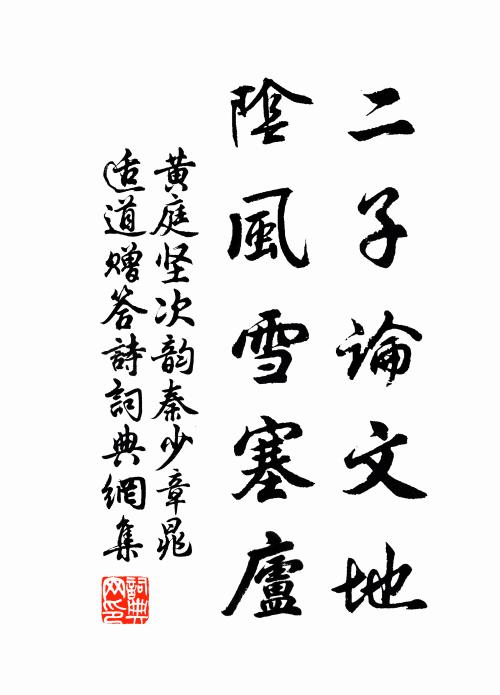 二子論文地
陰風雪塞廬
黄庭坚次韵秦少章晁
适道赠答詩詞典網集
詞典
网印